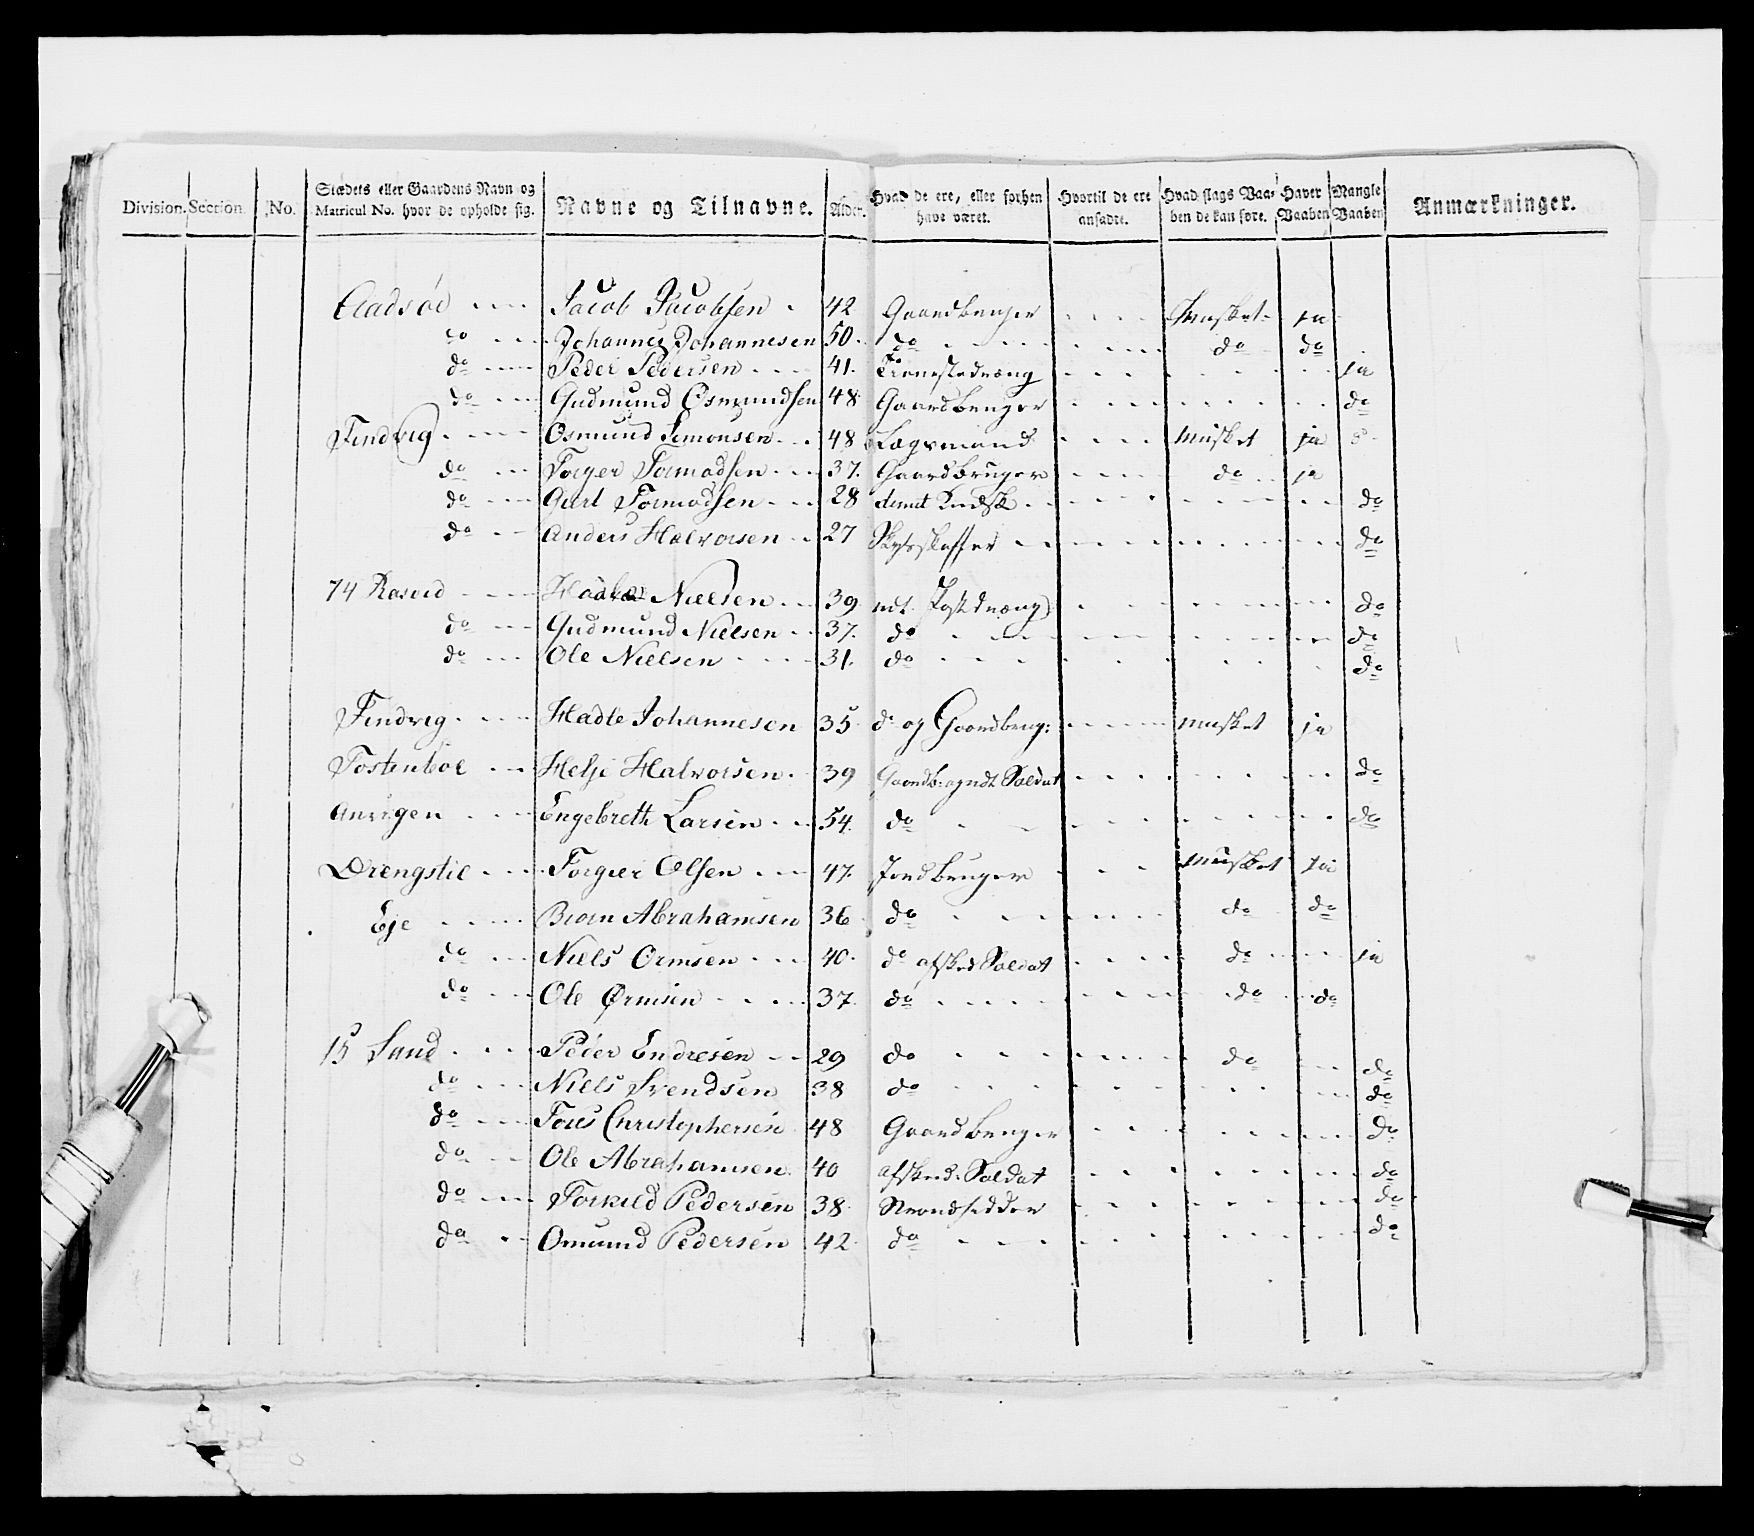 Division. Section. No. Stædets eller Gaardens Navn og Matricul No. hvor de opholde sig. Navne og Tilnavne. Alder. Hvad de ere, eller forhen have været. Hvortil de ere ansadte. Hvad slags Vaaben de kan føre. Haver Vaaben Mangle Vaaben Anmærkninger.
Jacob Jacobsen 42 Gaardbruger Musket ja
do Johannes Johannesen 50 do do do
do Peder Pedersen 41. ja
do Gudmund Osmundsen 48 Gaardbruger do
Findvig Osmund Simonsen 48 Lægsmand Musket ja
do Torger Tormodsen 37. Gaardbruger do ja
do Tormodsen 28 do
do Anders Halvorsen 27 Skydsskaffer do
Nielsen 39 Postdreng do
do Gudmund Nielsen 37. do do
do Ole Nielsen 31. do do
Findvig Hadle Johannesen 35 do og Gaardbrug: Musket ja
Tostenbøe Helje Halvorsen 39 Soldat do
Engebreth Larsen 54. do do
Drengstie Torger Olsen 47. Jordbruger Musket ja
Eje Biørn Abrahamsen 36 do do do
do Niels Ormsen 40. do afsked Soldat do ja
do Ole Ørmsen 37. do do do
15 Sand Peder Endresen 29 do do do
do Niels Svendsen 38 do do
do Christophersen 48 Gaardbruger do
do Ole Abrahamsen 40 afsked: Soldat do
do Torkild Pedersen 38 Strandsidder do
do Omund Pedersen 42 do do